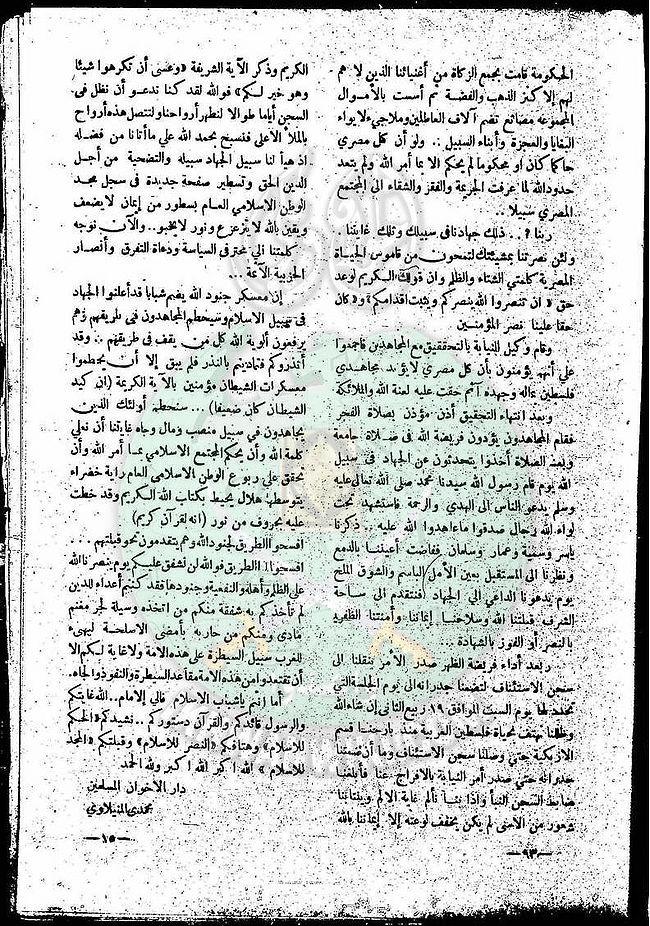 الحكومة قامت بجمع الزكاة من أغنيائنا الذين لا هم
لهم إلا كنز الذهب والفضة ثم أسست بالأموال
المجموعه مصانع تضم آلاف العاطلين وملاجىء لايواء
البغايا والعجزة وأبناء السبيل .. ولو أن كل مصري
حاكما كان او محكوما لم يحكم الا بما أمر الله ولم يتعد
حدود الله لما عرفت الجريمة والفقر والشقاء الى المجتمع
المصري سبيلا ..
ربنا .. ذلك جهادنا فى سبيلك وتلك غايتنا .
ولئن نصرتنا بمشيئتك لنمحون من قاموس الحياة
المصرية كلمتي الشقاء والظلم وان قولك الكريم لوعد
حق « ان تنصروا الله ينصركم ويثبت اقدامكم » و « كان
حقا علينا نصر المؤمنين
وقام وكيل النيابة بالتحقيق مع المجاهدين فاجمعوا
علي أنهم يؤمنون بأن كل مصري لا يؤيد مجاهدي
فلسطين بماله وجهده آثم حقت عليه لعنة الله والملائكة
وبعد انتهاء التحقيق أذن مؤذن بصلاة الفجر
فقام المجاهدون يؤدون فريضة الله فى صلاة جامعة
وبعد الصلاة أخذوا يتحدثون عن الجهاد فى سبيل
الله يوم قام رسول الله سيدنا محمد صلى الله تعالى عليه
وسلم يدعو الناس الى الهدي والرحمة فاستشهد تحت
لواء الله رجال صدقوا ما عاهدوا الله عليه .. ذكرنا
ياسر وسمية وعمار وسلمان ففاضت أعيننا بالدمع
ونظرنا الى المستقبل بعين الأمل الباسم والشوق الملح
يوم يدعونا الداعي الي الجهاد فنتقدم الى ساحة
الشرف قبلتنا الله وسلاحنا إيماننا وأمنيتنا الظفر
بالنصر أو الفوز بالشهادة ...
وبعد أداء فريضة الظهر صدر الامر بنقلنا الى
سجن الاستئناف لتضمنا جدرانه الى يوم الجلسة التي
تحدد لها يوم السبت الموافق ١٩ ربيع الثانى إن شاء الله
وظللنا نهتف بحياة فلسطين العربية منذ بارحنا قسم
الازبكية حتي وصلنا سجن الاستئناف وما أن ضمتنا
جدرانه حتي صدر أمر النيابة بالافراج عنا فأبلغنا
ضابط السجن النبأ واذا بنا نألم غاية الالم ويملأنا
شعور من الاسى لم يكن يخفف لوعته إلا إيماننا بالله
— ٩٣ —
الكريم وذكر الآية الشريفة « وعسى أن تكرهوا شيئا
وهو خير لكم » فوالله لقد كنا ندعو أن نظل فى
السجن أياما طوالا لنطهر أرواحنا ولتتصل هذه أرواح
بالملأ الأعلى فنسبح بحمد الله علي ما أتانا من فضله
اذ هيأ لنا سبيل الجهاد سبيله والتضحية من أجل
الدين الحق وتسطير صفحة جديدة فى سجل مجد
الوطن الاسلامي العام بسطور من إيمان لا يضعف
ويقين بالله لا يتزعزع ونور لا يخبو .. والآن نوجه
كلمتنا الي محترفى السياسة ودعاة التفرق وأنصار
الحزبية الآثمة ...
إن معسكر جنود الله يضم شبابا قد أعلنوا الجهاد
فى سبيل الاسلام وسيحطم المجاهدون فى طريقهم وهم
يرفعون ألوية الله كل من يقف فى طريقهم .. وقد
أنذروكم فتماديتم بالنذر فلم يبق إلا أن يحطموا
معسكرات الشيطان مؤمنين بالآية الكريمة ( إن كيد
الشيطان كان ضعيفا ) ... سنحطم أولئك الذين
يجاهدون في سبيل منصب ومال وجاه غايتنا أن نعلي
كلمة الله وأن يحكم المجتمع الاسلامي بما أمر الله وأن
تخفق على ربوع الوطن الاسلامى العام راية خضراء
يتوسطها هلال يحيط بكتاب الله الكريم وقد خطت
عليه بحروف من نور ( انه لقرآن كريم )
افسحوا الطريق لجنود الله وهم يتقدمون نحو قبلتهم ...
افسحوا الطريق فوالله لن نشفق عليكم يوم ينصرنا الله
على الظلم وأهله والنفعية وجنودها فقد كنتم أعداء للدين
لم تأخذكم به شفقة منكم من اتخذه وسيلة لجر مغنم
مادى ومنكم من حاربه بأمضى الاسلحة ليهىء
للغرب سبيل السيطرة على هذه الامة ولا غاية لكم إلا
أن تقتعدوا من هذه الامة مقاعد السيطرة والنفوذ والجاه .
أما انتم ياشباب الاسلام فالي الإمام .. الله غايتكم
والرسول قائدكم والقرآن دستوركم .. نشيدكم « الحكم
للاسلام » وهتافكم « النصر للاسلام » وقبلتكم « المجد
للاسلام » الله اكبر الله اكبر ولله الحمد
دار الاخوان المسلمين
محمدي المنيلاوي
— ١٥ —